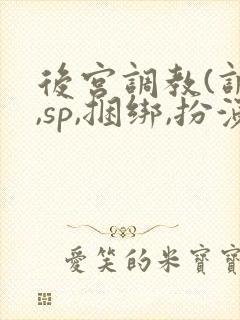 後宮調教(
,sp,捆绑,扮
愛笑的米寶寶